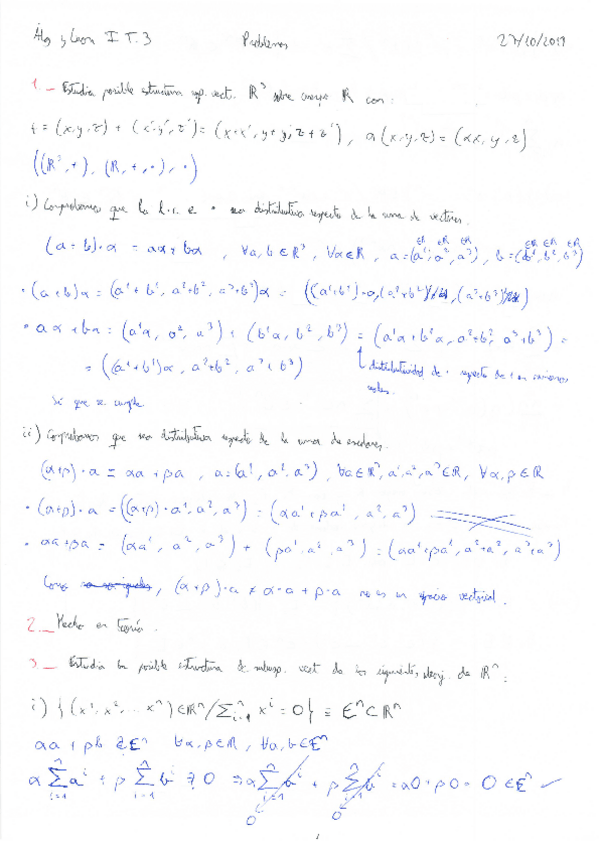 Álg y Geom I T.3 Problemas 27/10/2019
1._ Estudia posible estructura esp. vect. R³ sobre cuerpo R con:
(x,y,z) + (x',y',z') = (x+x', y+y', z+z'), α(x,y,z) = (αx, y, z)
((R³,+), (R,+,·), ·)
i) Comprobamos que la l.c.e · sea distributiva respecto de la suma de vectores.
(a+b)·α = aα+bα, ∀a,b∈R³, ∀α∈R, a=(a¹,a²,a³), b=(b¹,b²,b³)
· (a+b)α = (a¹+b¹, a²+b², a³+b³)α = ((a¹+b¹)·α, (a²+b²), (a³+b³))
· aα+bα = (a¹α, a², a³) + (b¹α, b², b³) = (a¹α+b¹α, a²+b², a³+b³) =
= ((a¹+b¹)α, a²+b², a³+b³)
distributividad de · respecto de + en
reales.
Sí que se cumple
ii) Comprobamos que sea distributiva respecto de la suma de escalares.
(α+β)·a = αa+βa, a=(a¹,a²,a³), ∀a∈R³, a¹,a²,a³∈R, ∀α,β∈R
· (α+β)·a = ((α+β)·a¹, a², a³) = (αa¹+βa¹, a², a³)
· αa+βa = (αa¹, a², a³) + (βa¹, a², a³) = (αa¹+βa¹, a²+a², a³+a³)
Como , (α+β)·a ≠ α·a+β·a no es un espacio vectorial.
2._ Hecho en teoría.
3._ Estudia la posible estructura de subesp. vect de los siguientes de Rⁿ:
i) {(x¹,x²,...xⁿ)∈Rⁿ/∑ⁿᵢ₌₁ xⁱ=0} ≡ Eⁿ⊂Rⁿ
αa+βb ∈Eⁿ ∀α,β∈R, ∀a,b∈Eⁿ
α∑ⁿᵢ₌₁aⁱ + β∑ⁿᵢ₌₁bⁱ = 0 ⇒ α∑ⁿᵢ₌₁aⁱ + β∑ⁿᵢ₌₁bⁱ = α0+β0 = 0 ∈Eⁿ ✓
0 0